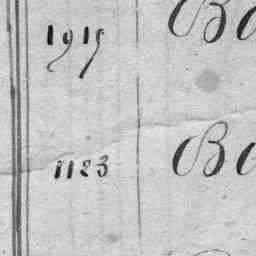 1915 Ba
1123 Ba